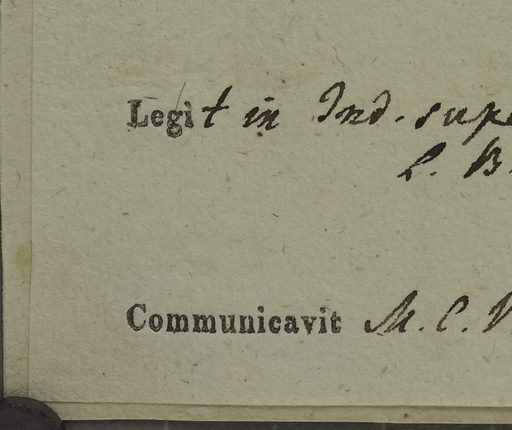 Legit in Ind. supe
L. B.
Communicavit M. C. V